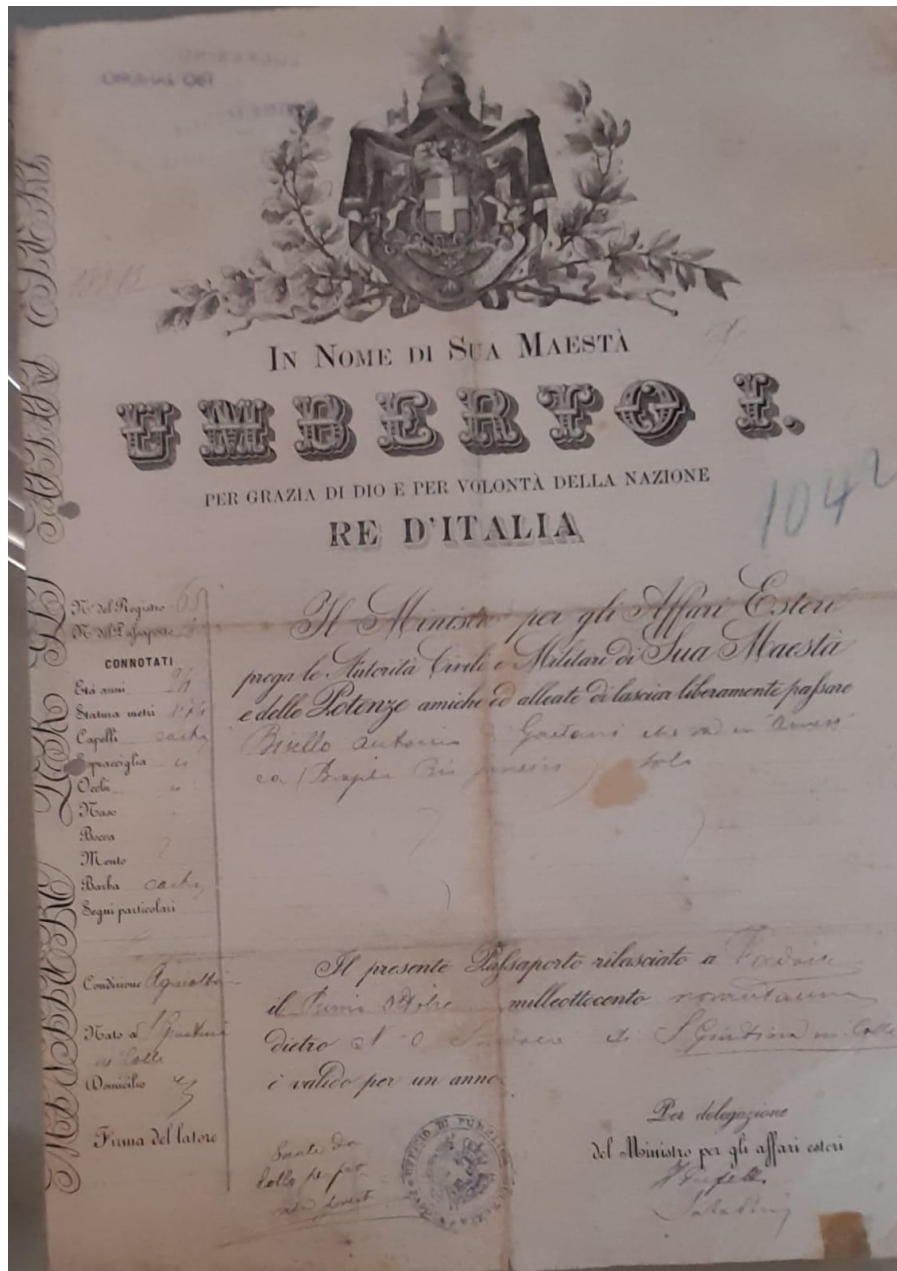 IN NOME DI SUA MAESTÀ
UMBERTO I.
PER GRAZIA DI DIO E PER VOLONTÀ DELLA NAZIONE
RE D'ITALIA
1042
N.º del Registro 65
N.º del Passaporto
CONNOTATI
Età anni
Statura metri
Capelli casta
Sopracciglia
Occhi
Naso
Bocca
Mento
Barba casta
Segni particolari
Condizione
Nato a S Giustina
in Colle
Domicilio
Firma del latore
Il Ministro per gli Affari Esteri
prega le Autorità Civili e Militari di Sua Maestà
e delle Potenze amiche ed alleate di lasciar liberamente passare
Bisello Antonio di Gaetano che va in Ameri
ca (Brasile Rio Janeiro) solo
Il presente Passaporto rilasciato a Padova
il Primo 8bre milleottocento novantauno
dietro N O Sindaco di S Giustina in Colle
è valido per un anno.
Per delegazione
del Ministro per gli affari esteri